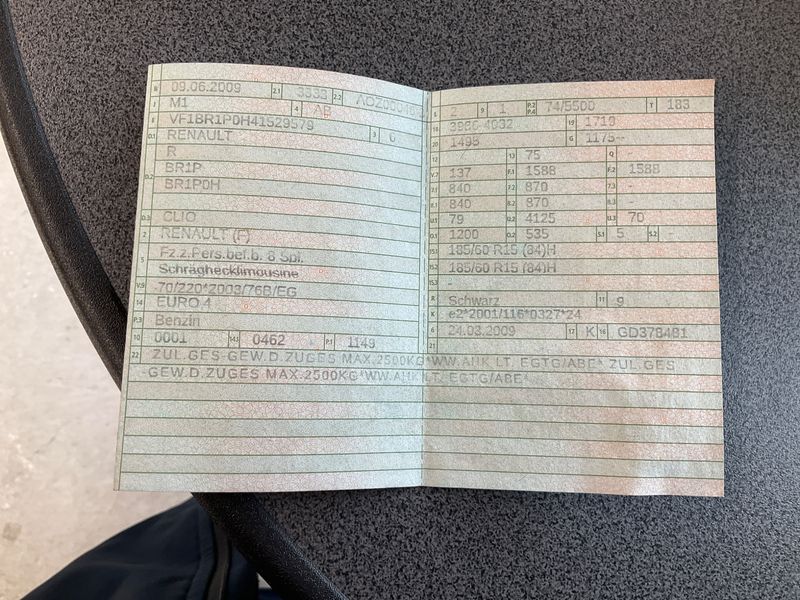 B 09.06.2009 2.1 3333 2.2
J M1 4 AB
E VF1BR1P0H41529579 3 0
D.1 RENAULT
R
D.2 BR1P
BR1P0H
D.3 CLIO
2 RENAULT (F)
5 Fz.z.Pers.bef.b. 8 Spl.
Schräghecklimousine
V.9 70/220*2003/76B/EG
14 EURO 4
P.3 Benzin
10 0001 14.1 0462 P.1 1149
22 ZUL.GES-GEW.D.ZUGES MAX.2500KG*WW.AHK LT. EGTG/ABE* ZUL.GES
-GEW.D.ZUGES MAX.2500KG*WW.AHK LT. EGTG/ABE*
L 2 9 1 P.2 P.4 74/5500 T 183
18 3986-4032 19 1719
20 1495 G 1175--
12 - 13 75 Q
V.7 137 F.1 1588 F.2 1588
7.1 840 7.2 870 7.3 -
8.1 840 8.2 870 8.3 -
U.1 79 U.2 4125 U.3 70
O.1 1200 O.2 535 S.1 5 S.2 -
15.1 185/60 R15 (84)H
15.2 185/60 R15 (84)H
15.3 -
R Schwarz 11 9
K e2*2001/116*0327*24
6 24.03.2009 17 K 16 GD378481
21